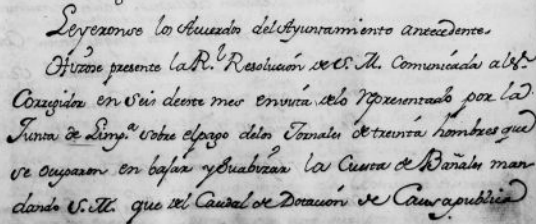 Leyeronse los Acuerdos del Ayuntamiento antecedente.
Hizose presente la R.l Resolución de S. M. Comunicada al S.r
Corregidor en seis de este mes en vista de lo representado por la
Junta de Limp.a sobre el pago de los Jornales de treinta hombres que
se ocuparon en bajar y suabizar la Cuesta de Bañales man
dando S. M. que del Caudal de Dotación de Causa publica